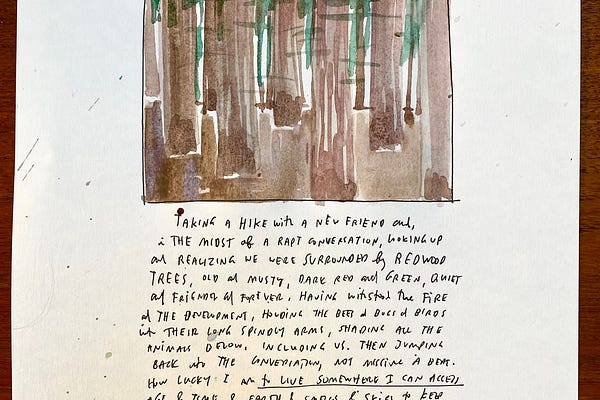 TAKING A HIKE with A NEW FRIEND and,
in THE MIDST of A RAPT CONVERSATION, LOOKING UP
and REALIZING WE WERE SURROUNDED by REDWOOD
TREES, OLD and MUSTY, DARK RED and GREEN, QUIET
and FRIENDLY and FOREVER. HAVING withstood the FIRE
and THE DEVELOPMENT, HOLDING THE BEES and BUGS and BIRDS
with THEIR LONG SPINDLY ARMS, SHADING ALL THE
ANIMALS BELOW. INCLUDING US. THEN JUMPING
BACK into THE CONVERSATION, NOT MISSING A BEAT.
HOW LUCKY I AM to LIVE SOMEWHERE I CAN ACCESS
AGE & TIME & EARTH & & SKIES to KEEP